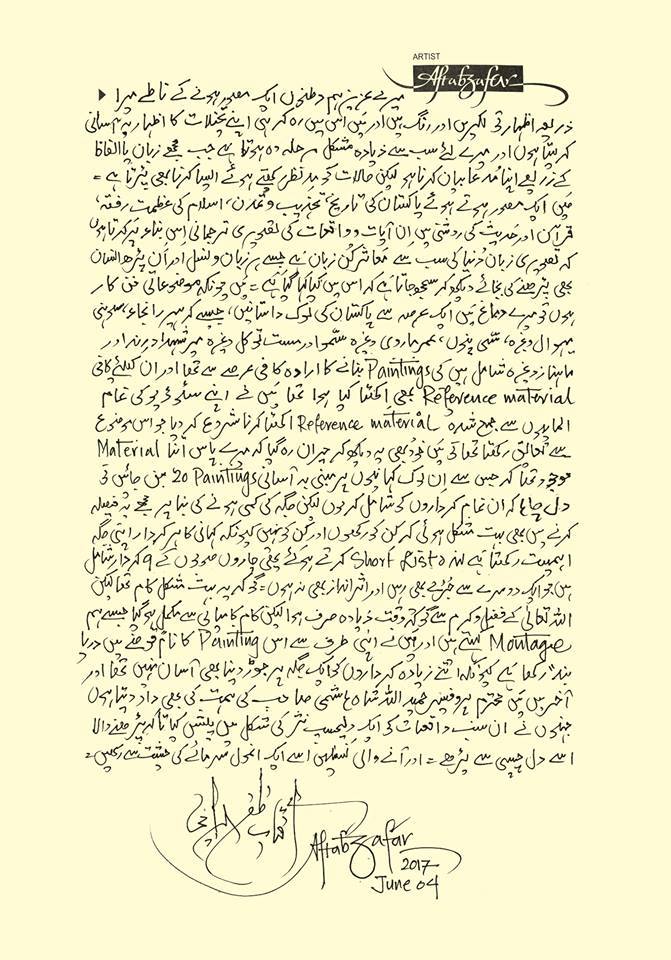 ARTIST
Aftabzafar
میرے عزیز ہم وطنوں ایک مصور ہونے کے ناطے میرا
ذریعہ اظہار تو لکیریں اور رنگ ہیں اور میں اس میں رہ کر ہی اپنے تخیلات کا اظہار بہ آسانی
کر لیتا ہوں اور میرے لئے سب سے زیادہ مشکل مرحلہ وہ ہوتا ہے جب مجھے زبان یا الفاظ
کے ذریعے اپنا مُدعا بیان کرنا ہو لیکن حالات کو مدِنظر رکھتے ہوئے ایسا کرنا بھی پڑتا ہے =
میں ایک مصور ہوتے ہوئے پاکستان کی تاریخ، تہذیب و تمدن، اسلام کی عظمت رفتہ،
قرآن اور حدیث کی روشنی میں ان آیات و واقعات کی تصویری ترجمانی اِس بناء پر کرتا ہوں
کہ تصویری زبان دُنیا کی سب سے متاثر کُن زبان ہے جسے ہر زبان و نسل اور اَن پڑھ انسان
بھی پڑھنے کی بجائے دیکھ کر سمجھ جاتا ہے کہ اس میں کیا کہا گیا ہے = میں چونکہ موضوعاتی فن کار
ہوں تو میرے دماغ میں ایک عرصہ سے پاکستان کی لوک داستانیں، جیسے کہ ہیر رانجھا، سوہنی
مہیوال وغیرہ، سسی پنوں، عمر ماروی وغیرہ سمو اور مست توکلی وغیرہ میر شہداد
وغیرہ شامل ہیں کی Paintings بنانے کا ارادہ کافی عرصے سے تھا اور ان کیلئے کافی
Reference material بھی اکٹھا کیا ہوا تھا میں نے اپنے سٹوڈیو کی تمام
الماریوں سے جمع شدہ Reference material اکٹھا کرنا شروع کر دیا جو اس موضوع
سے تعلق رکھتا تھا تو میں خود بھی یہ دیکھ کر حیران رہ گیا کہ میرے پاس اتنا Material
موجود تھا کہ جس سے اِن لوک کہانیوں پر مبنی بہ آسانی 20 Paintings بن جائیں گی
دل چاہا کہ ان تمام کرداروں کو شامل کر لوں لیکن جگہ کی کمی ہونے کی بنا پر مجھے یہ فیصلہ
کرنے میں بھی بہت مشکل ہوئی کہ کِس کو رکھوں اور کِس کو نہیں کیونکہ کہانی کا ہر کردار اپنی جگہ
اہمیت رکھتا ہے Short List کرتے ہوئے یعنی چاروں صوبوں کے 9 کردار شامل
ہیں جو ایک دوسرے سے جُڑے بھی رہیں اور اثر انداز بھی نہ ہوں = گو کہ یہ بہت مشکل کام تھا لیکن
اللہ تعالٰی کے فضل و کرم سے گو کہ وقت زیادہ صرف ہوا لیکن کام کامیابی سے مکمل ہو گیا جسے ہم
Montage کہتے ہیں اور میں نے اپنی طرف سے اس Painting کا نام کوزے میں دریا
بند" رکھا ہے کیونکہ اتنے زیادہ کرداروں کو ایک جگہ پر جوڑ دینا بھی آسان نہیں تھا اور
آخر میں میں محترم پروفیسر حمید اللہ شاہ ہاشمی صاحب کی ہمت کی بھی داد دیتا ہوں
جنہوں نے ان سب واقعات کو ایک دلچسپ نثر کی شکل میں پیش کیا تاکہ پڑھنے والا
اسے دل چسپی سے پڑھے = اور آنے والی نسلیں اسے ایک انمول سرمائے کی حیثیت سے رکھیں =
آفتاب ظفر
Aftabzafar
2017
June 04